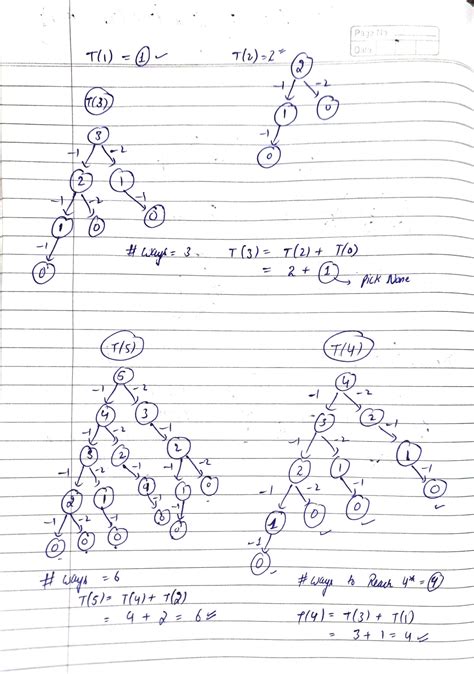 Page No.
Date
T(1) = 1 ✓
T(2) = 2"
2
-1 -2
1 0
-1
0
T(3)
3
-1 -2
2 1
-1 -2 -1
1 0 0
-1
0
# ways = 3.
T(3) = T(2) + T(0)
= 2 + 1 → Pick None
T(5)
5
-1 -2
4 3
-1 -2 -1
3 2 2
-1 -2 -1 -1 -2
2 1 1 0
-1 -2 -1 -1 -1
0 0 0 0 0
# ways = 6
T(5) = T(4) + T(2)
= 4 + 2 = 6 ✓
T(4)
4
-1 -2
3 2
-1 -2 -1
2 1 1
-1 -2 -1 -1
1 0 0 0
-1
0
# ways to Reach 4th = 4
T(4) = T(3) + T(1)
= 3 + 1 = 4 ✓